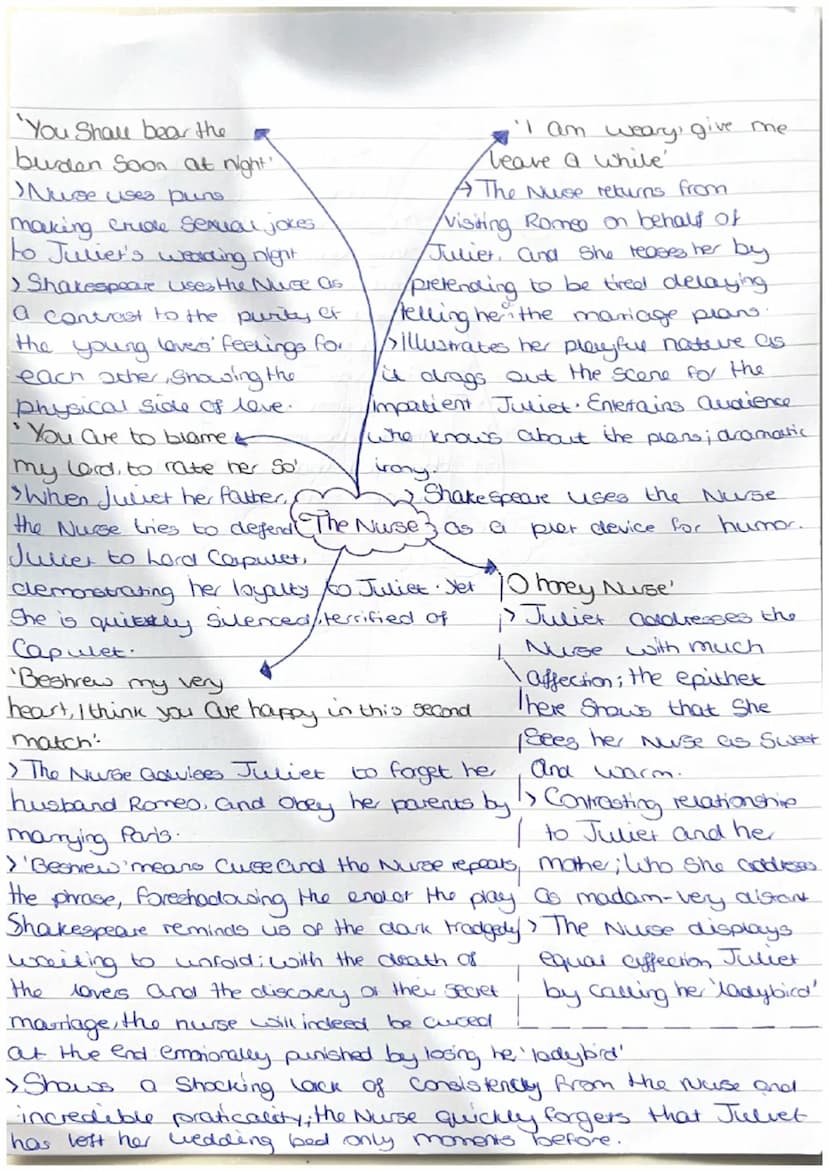 'You Shall bear the
burden soon at night'
>Nurse uses puns
making crude sexual jokes
to Juliet's wedding night
> Shakespeare uses the Nurse as
a contrast to the purity of
the young loves' feelings for
each other, showing the
physical side of love.
'You are to blame
my lord, to rate her so'
>When Juliet her father,
the Nurse tries to defend
Juliet to Lord Capulet,
demonstrating her loyalty to Juliet. Yet
She is quickly silenced, terrified of
Capulet.
'Beshrew my very
heart, I think you are happy in this second
match'.
> The Nurse advices Juliet to forget her
husband Romeo, and obey her parents by
marrying Paris.
>'Beshrew' means Curse and the Nurse repeats
the phrase, foreshadowing the end of the play
Shakespeare reminds us of the dark tradgety
waiting to unfold; with the death of
the lovers and the discovery of their secret
marriage, the nurse will indeed be cursed
at the end emotionally punished by losing he 'ladybird'
>Shows a Shocking lack of consistently from the nurse and
incredible praticality, the Nurse quickly forgets that Juliet
has left her wedding bed only moments before.
The Nurse
'I am weary, give me
leave a while'
> The Nurse returns from
visiting Romeo on behalf of
Juliet, and she teases her by
pretending to be tired delaying
telling her the marriage plans.
>Illustrates her playful nature as
it drags out the scene for the
impatient Juliet. Entertains audience
who knows about the plans; dramatic
irony.
> Shakespeare uses the Nurse
as a plot device for humor.
'O honey Nurse'
> Juliet addresses the
Nurse with much
affection; the epithet
here shows that she
Sees her Nurse as sweet
and warm.
> Contrasting relationship
to Juliet and her
mother; who she address
as madam-very distant
> The Nurse displays
equal affection Juliet
by calling her 'ladybird'